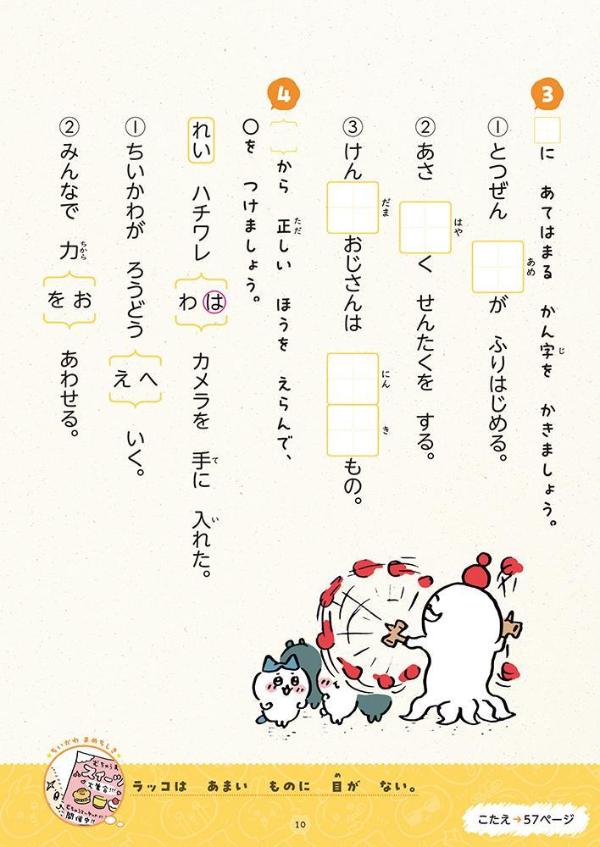 3
□に あてはまる かん字を かきましょう。
じ
① とつぜん □が ふりはじめる。
あめ
② あさ □く せんたくを する。
はや
③ けん□おじさんは □□もの。
だま
にん き
4
{ }から 正しい ほうを えらんで、
ただ
○を つけましょう。
れい ハチワレ{は わ}カメラを 手に 入れた。
て い
① ちいかわが ろうどう{へ え}いく。
② みんなで 力{お を}あわせる。
ちから
ちいかわ まめちしき
むちゅう
スイーツ
大集合!!!
開催中!!
ラッコは あまい ものに 目が ない。
め
10
こたえ→57ページ